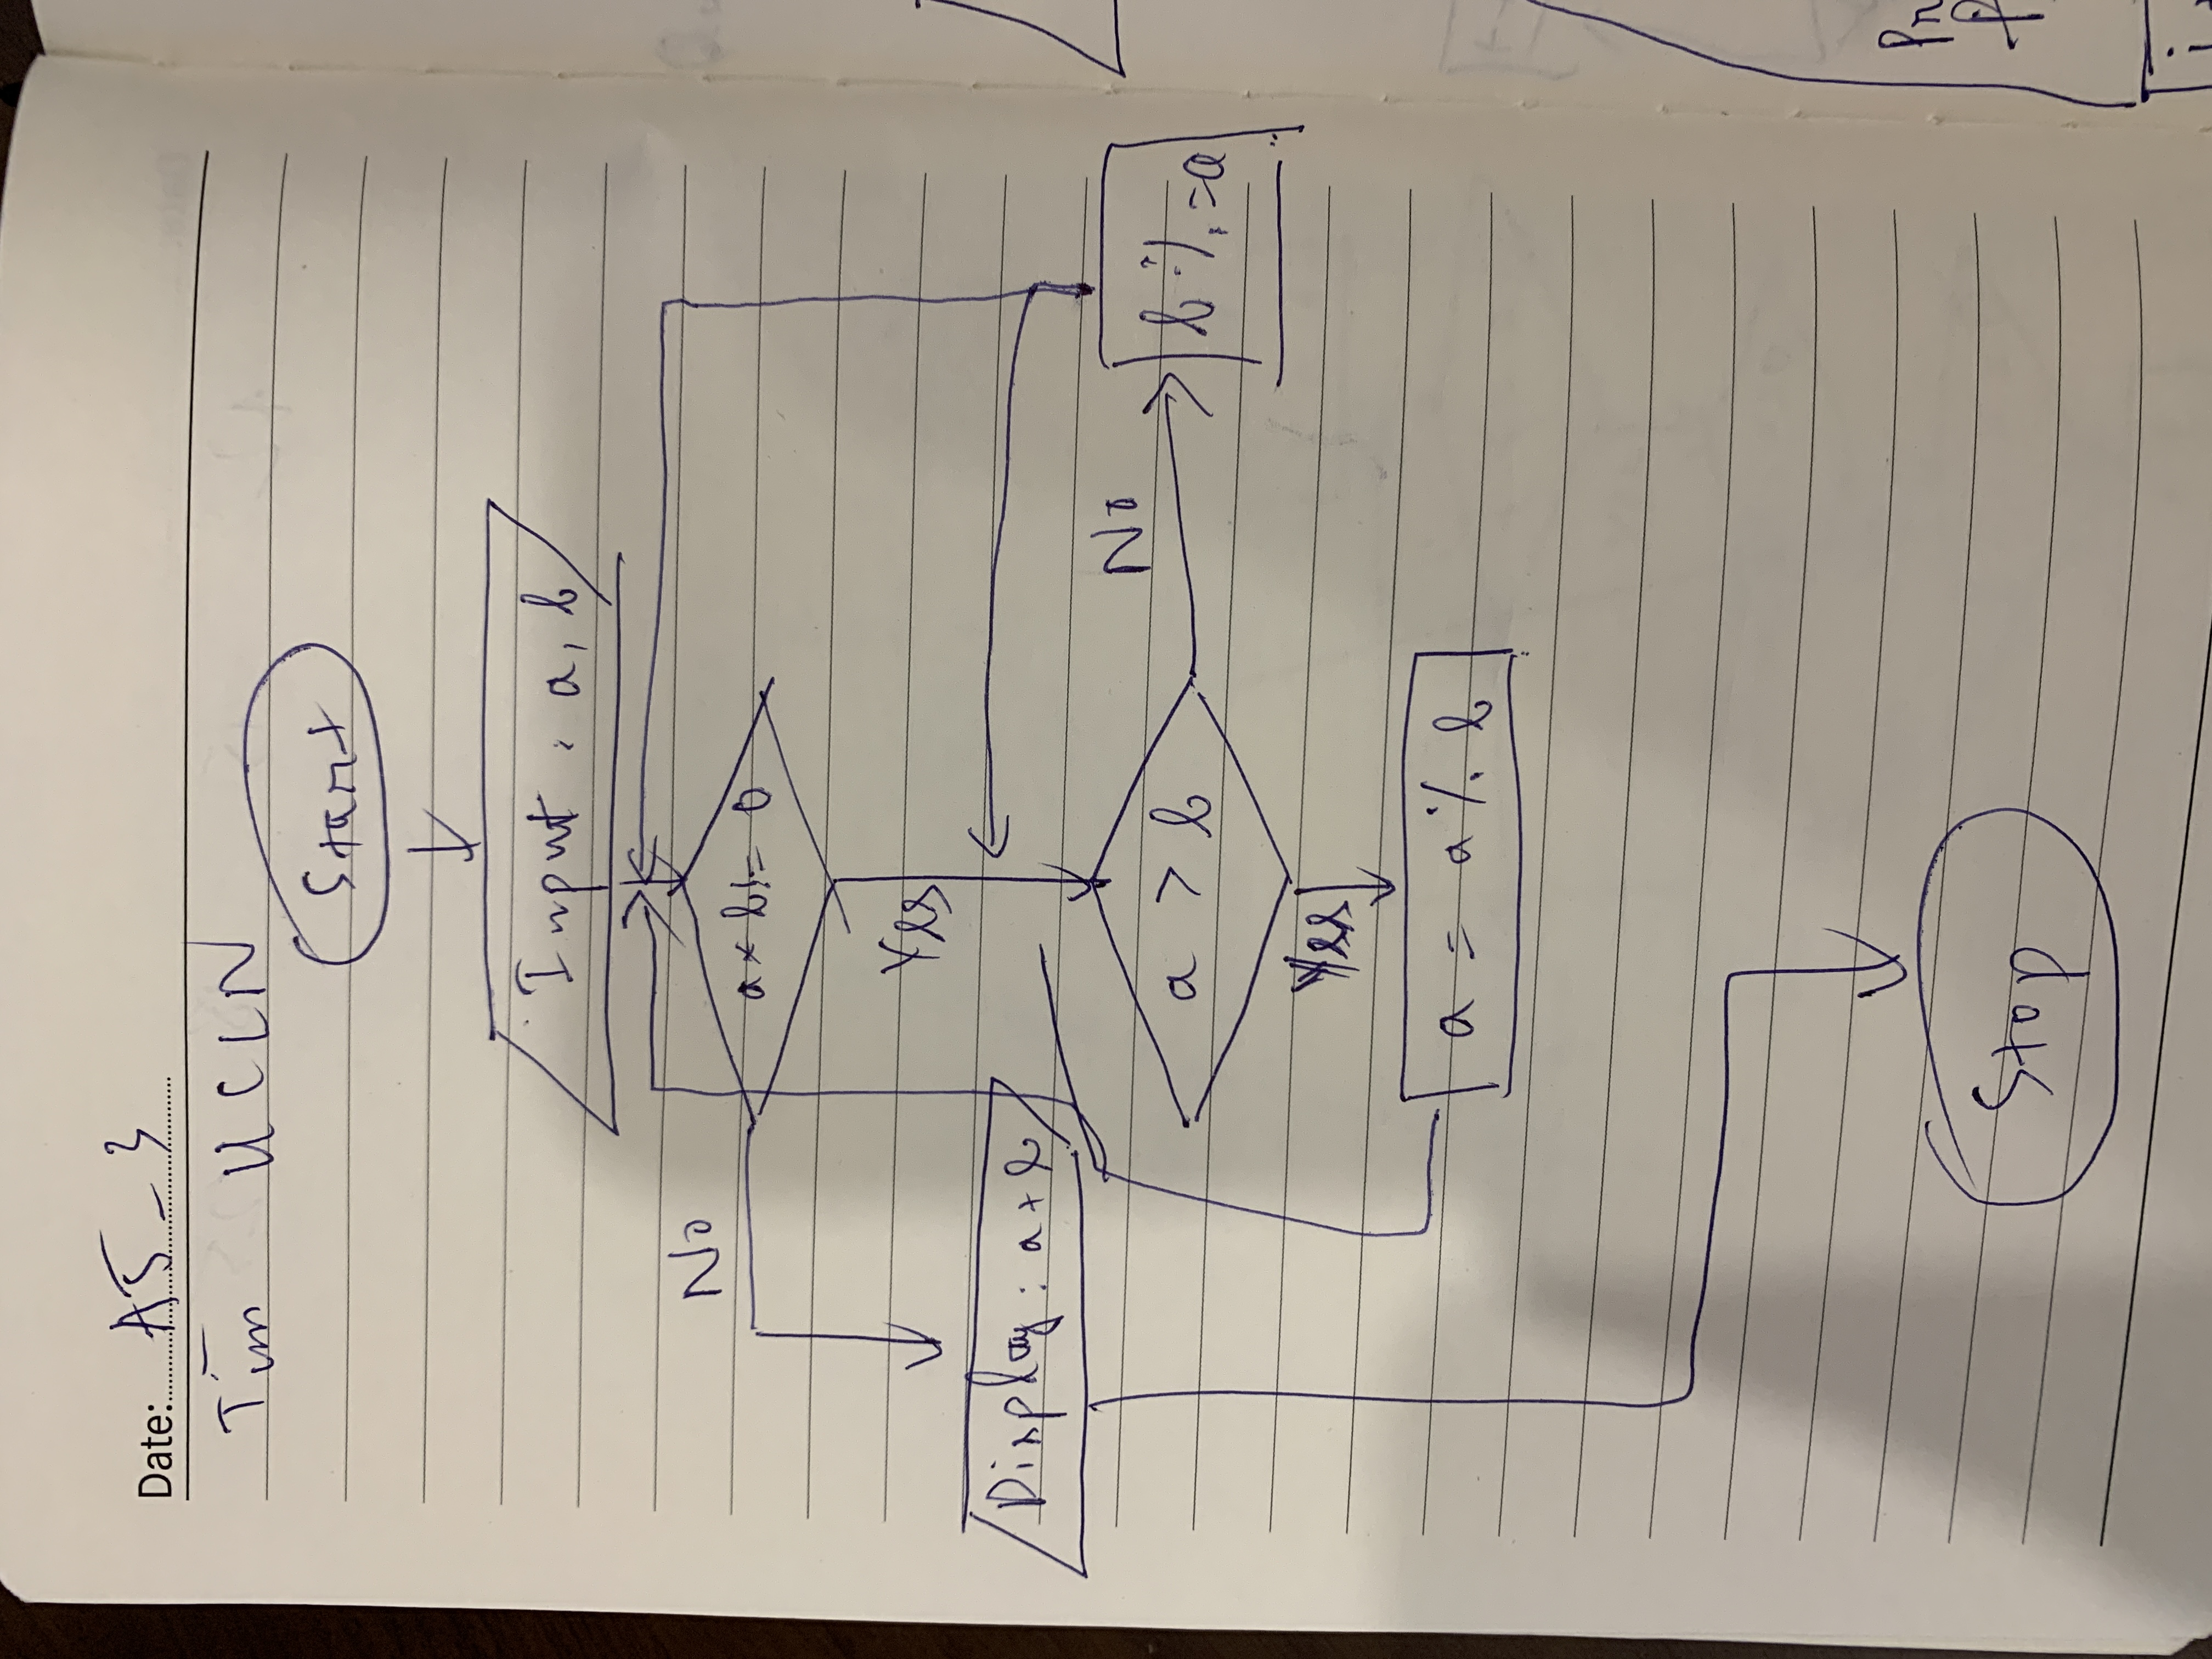 Date: A5-3
Tìm UCLN
Start
Input : a, b
a × b != 0
No
Yes
Display : a + b
a > b
No
b %= a
Yes
a = a % b
Stop